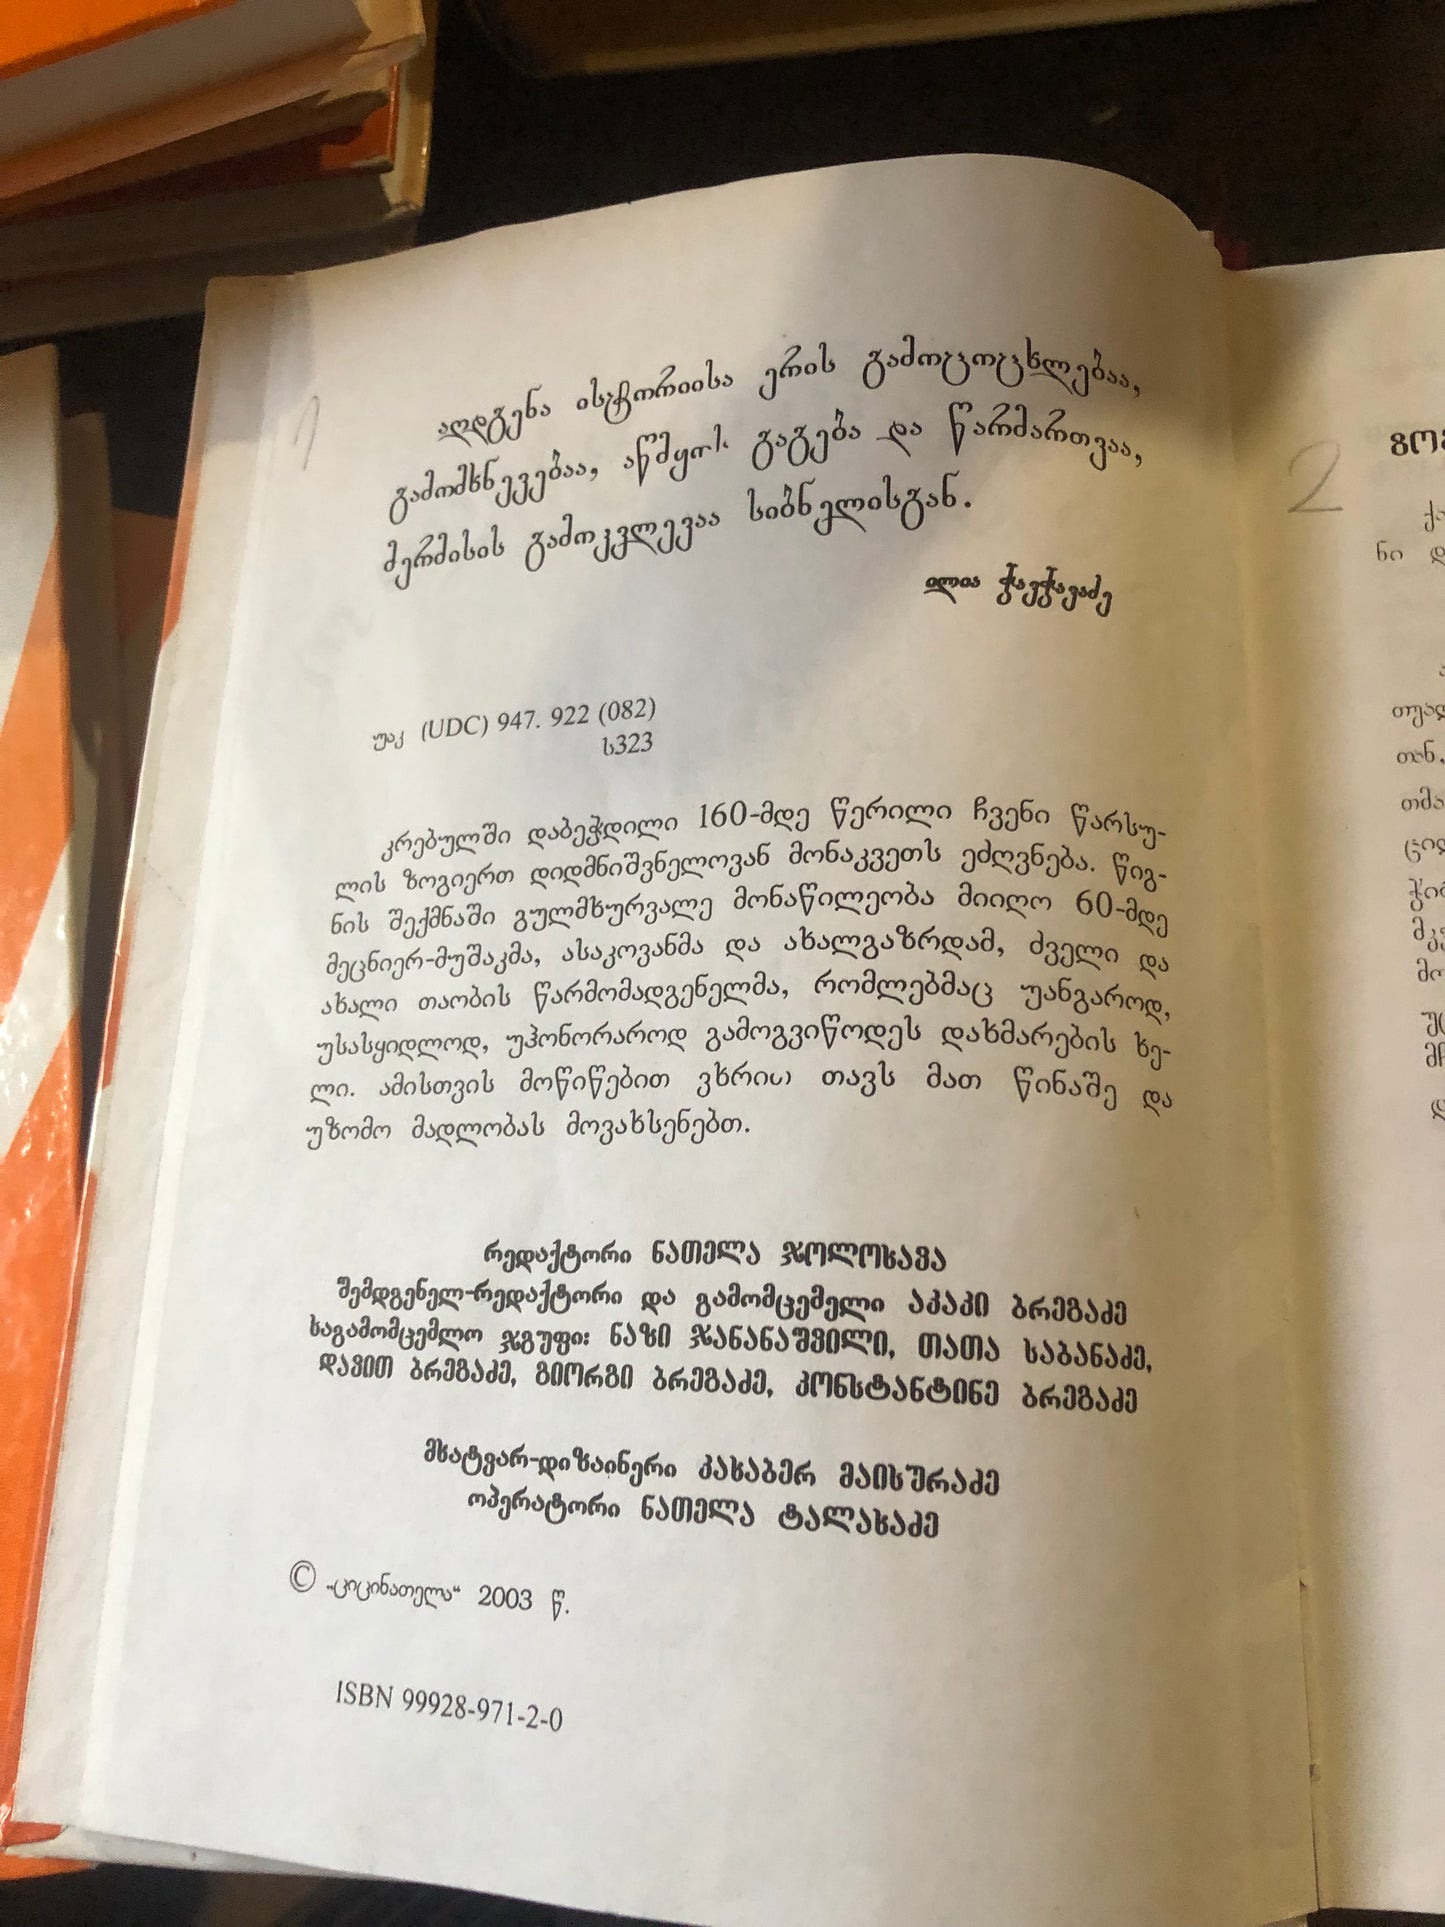 1
აღდგენა ისტორიისა ერის გამოცოცხლებაა,
გამომხნევებაა, აწმყოს გაგება და წარმართვაა,
მერმისის გამოკვლევაა სიბნელისგან.
ილია ჭავჭავაძე
უაკ (UDC) 947. 922 (082)
ს323
კრებულში დაბეჭდილი 160-მდე წერილი ჩვენი წარსუ-
ლის ზოგიერთ დიდმნიშვნელოვან მონაკვეთს ეძღვნება. წიგ-
ნის შექმნაში გულმხურვალე მონაწილეობა მიიღო 60-მდე
მეცნიერ-მუშაკმა, ასაკოვანმა და ახალგაზრდამ, ძველი და
ახალი თაობის წარმომადგენელმა, რომლებმაც უანგაროდ,
უსასყიდლოდ, უჰონორაროდ გამოგვიწოდეს დახმარების ხე-
ლი. ამისთვის მოწიწებით ვხრით თავს მათ წინაშე და
უზომო მადლობას მოვახსენებთ.
რედაქტორი ნათელა ჯოლოხავა
შემდგენელ-რედაქტორი და გამომცემელი აკაკი ბრეგაძე
საგამომცემლო ჯგუფი: ნაზი ჯანანაშვილი, თათა საბანაძე,
დავით ბრეგაძე, გიორგი ბრეგაძე, კონსტანტინე ბრეგაძე
მხატვარ-დიზაინერი კახაბერ მაისურაძე
ოპერატორი ნათელა ტალახაძე
© „ციცინათელა“ 2003 წ.
ISBN 99928-971-2-0
2
ნი
თან,